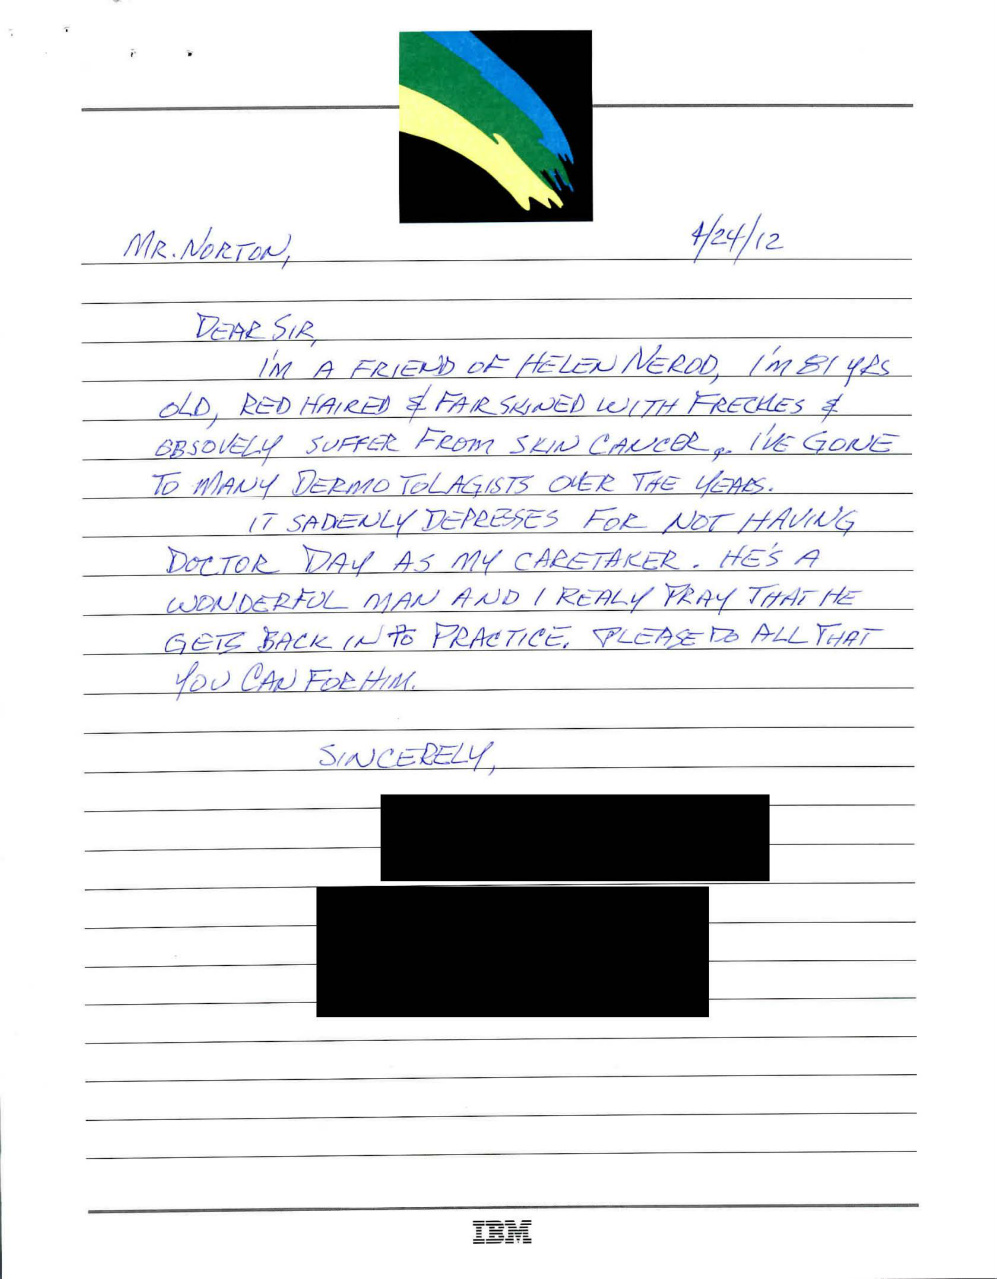 MR. NORTON,
4/24/12
DEAR SIR,
I'M A FRIEND OF HELEN NEROD, I'M 81 YRS
OLD, RED HAIRED & FAIR SKINED WITH FRECKLES &
OBSOVELY SUFFER FROM SKIN CANCER. I'VE GONE
TO MANY DERMOTOLAGISTS OVER THE YEARS.
IT SADENLY DEPRESSES FOR NOT HAVING
DOCTOR DAY AS MY CARETAKER. HE'S A
WONDERFUL MAN AND I REALY PRAY THAT HE
GETS BACK IN TO PRACTICE. PLEASE DO ALL THAT
YOU CAN FOR HIM.
SINCERELY,
IBM